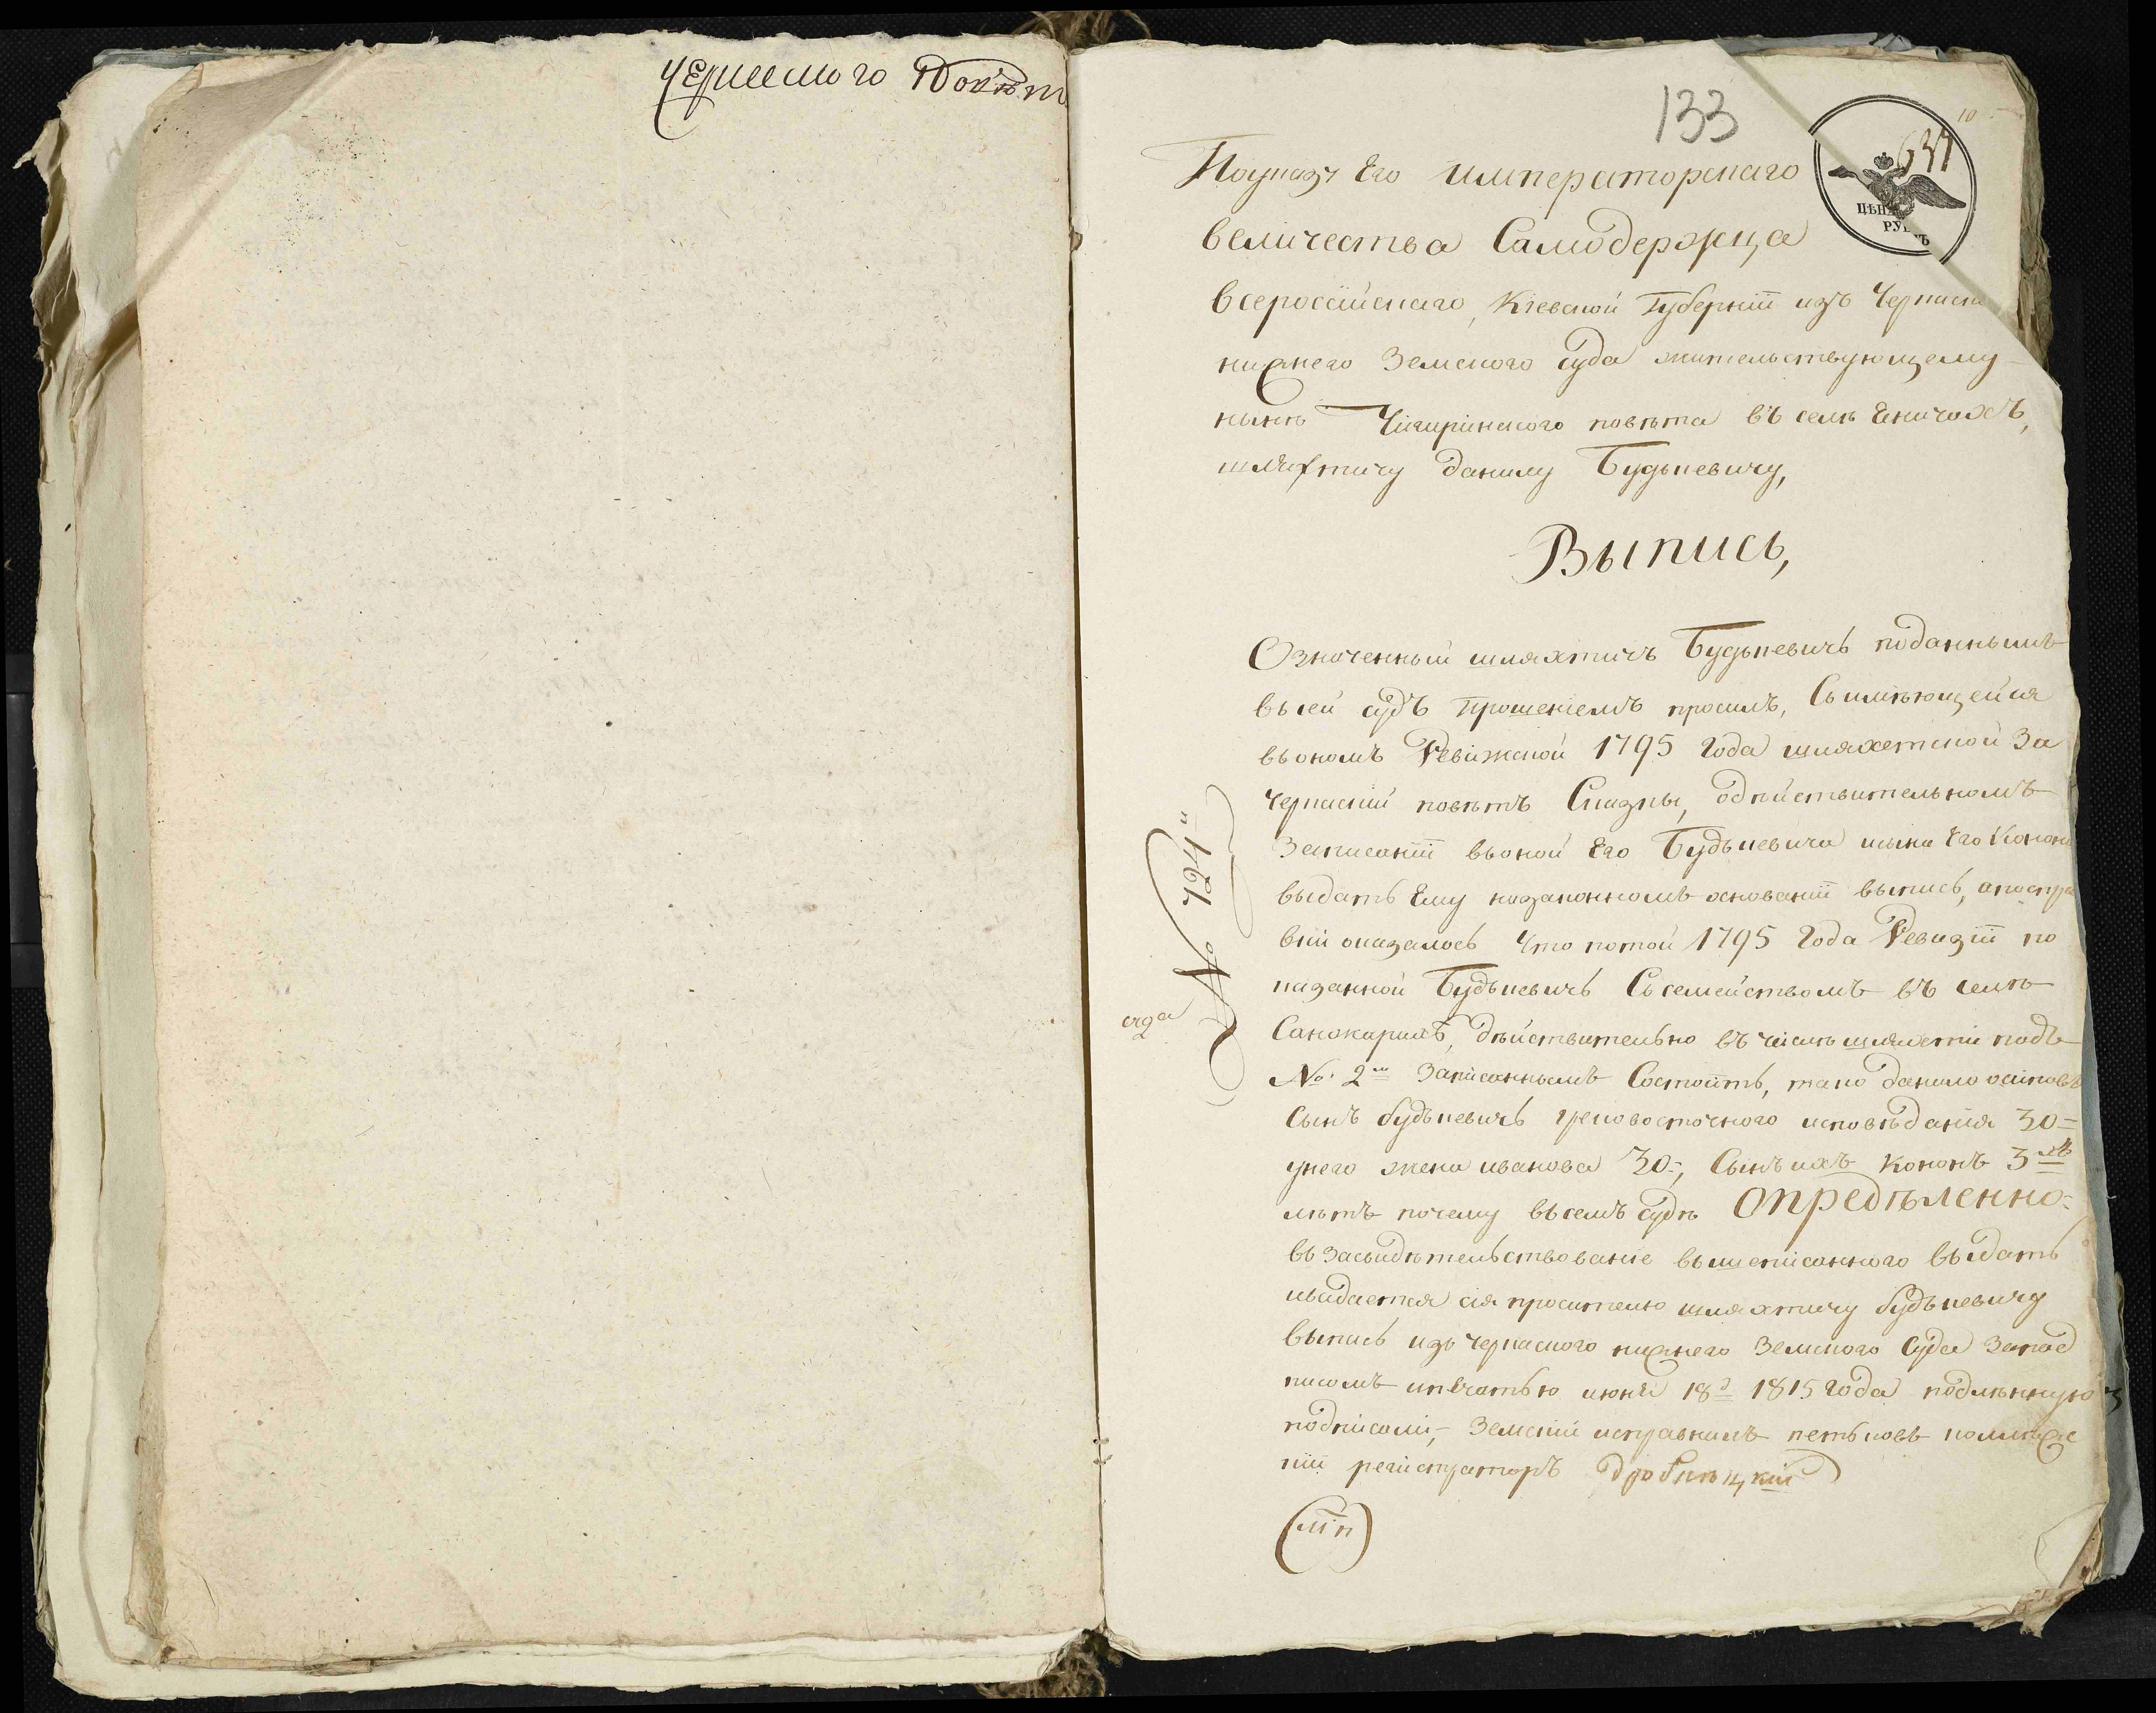 Черкаского Повѣт
133
637
10
ЦѢН
РУ
Поуказу Его императорскаго
величества Самодержца
всеросийскаго, Кіевской Губерніи изъ Черкаск
нижнего Земского суда жительствующему
нынѣ Чигиринского повѣта въ селѣ
шляхтичу данилу Будькевичу,
Выпись,
Означенный шляхтичъ Будькевичъ поданнымъ
въ сей судъ прошеніемъ просилъ, Съ имѣющейся
въ ономъ Ревижской 1795 года шляхетской За
Черкаский повѣтъ Сказки, одѣйствительномъ
Записаніи въ оной Его Будькевича исына Его Конона
выдать Ему назаконномъ основаніи выпись, апоспра
вки оказалось Что потой 1795 года Ревизіи по
казанной Будькевичъ Съ семействомъ въ селѣ
дѣйствительно въ числѣ шляхти подъ
№ 2м Записаннымъ Состоитъ, тако данило осиповъ
Сынъ будькевичъ грековосточного исповѣданія 30=
унего жена иванова 30-, Сынъ ихъ кононъ 3хъ
лѣтъ почему въ семъ судѣ Опредѣленно=
въ засвидѣтельствованіе вышеписанного выдать
ивидается сія просителю шляхтичу будькевичу
выпись изъ черкаского нижнего Земского Суда Запод
писомъ ипечатью июня 18д 1815 года подлѣнную
подписали, Земский исправникъ петьковъ колежс
кий регистраторъ
(мп)
№ 1264